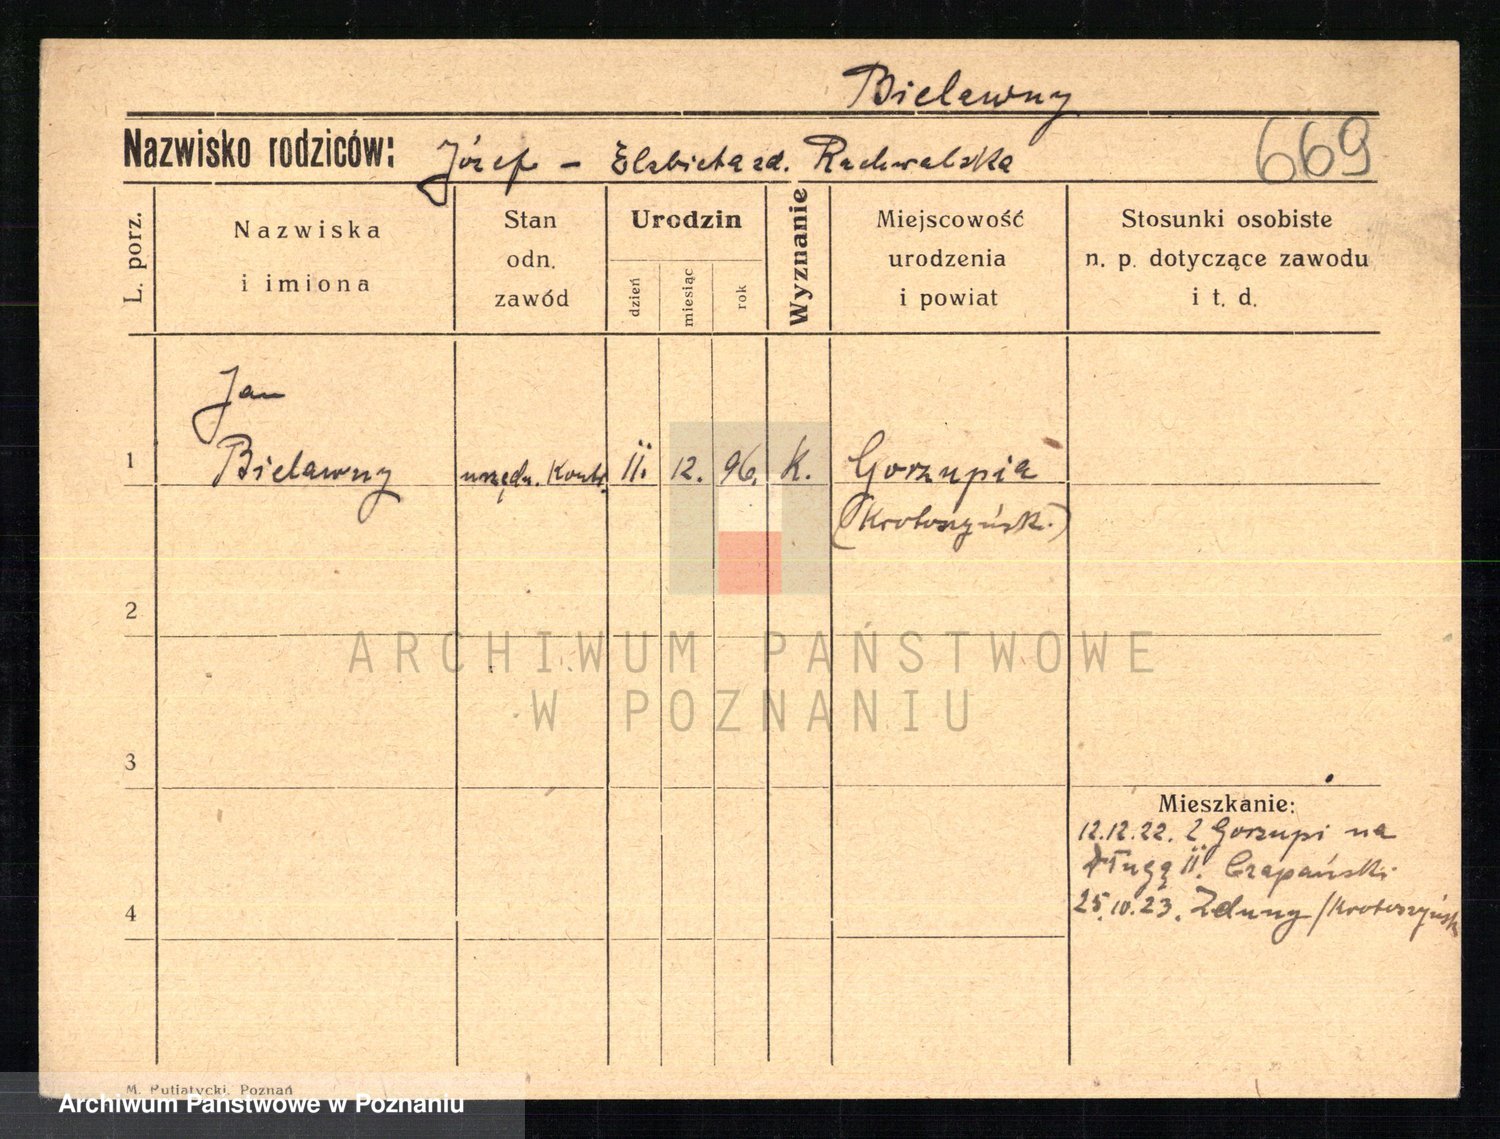 Bielawny
Nazwisko rodziców: Józef - Elżbieta zd. Rachwalska 669
L. porz.
Nazwiska
i imiona
Stan
odn.
zawód
Urodzin
dzień
miesiąc
rok
Wyznanie
Miejscowość
urodzenia
i powiat
Stosunki osobiste
n. p. dotyczące zawodu
i t. d.
Jan
1 Bielawny urzędn. 11. 12. 96. K. Gorzupia
(Krotoszyńsk.)
2
ARCHIWUM PAŃSTWOWE
W POZNANIU
3
Mieszkanie:
12.12.22. z Gorzupi na
Długą 11. Czapański
4 25.10.23. Zduny /Krotoszyńsk
M. Putiatycki, Poznań
Archiwum Państwowe w Poznaniu